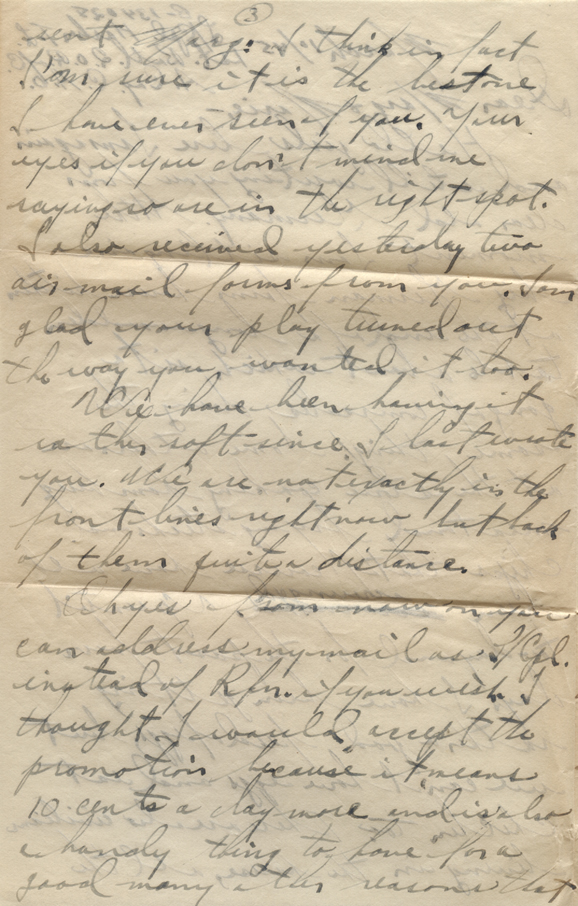 3
sent Marg: I think in fact
I'm sure it is the best one
I have ever seen of you. Your
eyes if you don't mind me
saying so are in the right spot.
I also received yesterday two
air mail forms from you. I'm
glad your play turned out
the way you wanted it too.
We have been having it
rather soft since I last wrote
you. We are not exactly in the
front lines right now but back
of them quite a distance.
Oh yes from now on you
can address my mail as A/Cpl.
instead of Rfn. if you wish. I
thought I would accept the
promotion because it means
10 cents a day more and is also
a handy thing to have for a
good many other reasons that